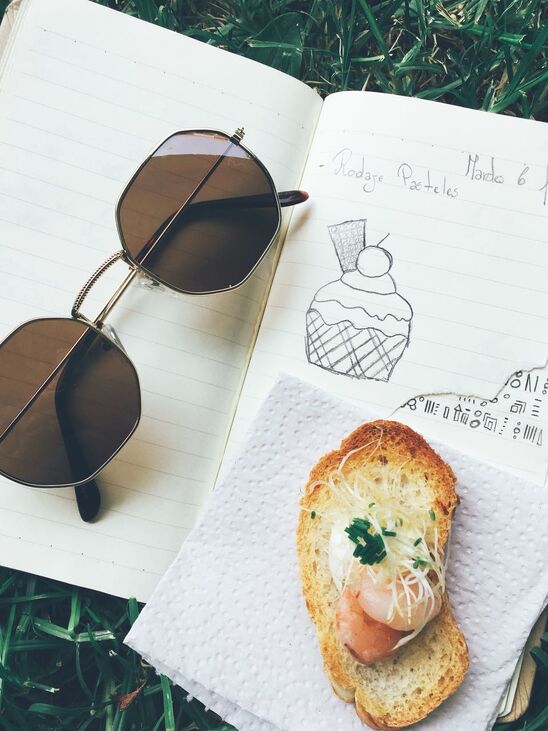 - Rodaje Pasteles Martes 6